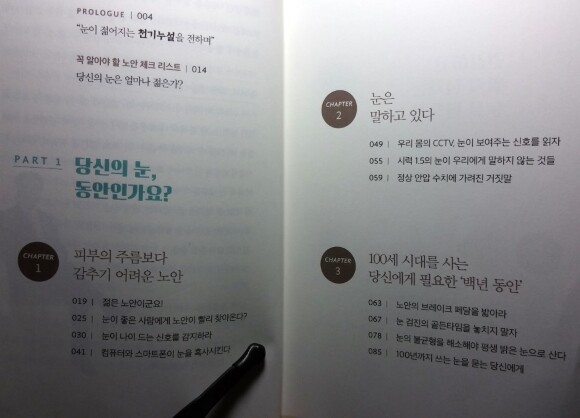 PROLOGUE | 004
“눈이 젊어지는 천기누설을 전하며”
꼭 알아야 할 노안 체크 리스트 | 014
당신의 눈은 얼마나 젊은가?
PART 1 당신의 눈,
동안인가요?
CHAPTER 1 피부의 주름보다
감추기 어려운 노안
019 | 젊은 노안이군요!
025 | 눈이 좋은 사람에게 노안이 빨리 찾아온다?
030 | 눈이 나이 드는 신호를 감지하라
041 | 컴퓨터와 스마트폰이 눈을 혹사시킨다
CHAPTER 2 눈은
말하고 있다
049 | 우리 몸의 CCTV, 눈이 보여주는 신호를 읽자
055 | 시력 1.5의 눈이 우리에게 말하지 않는 것들
059 | 정상 안압 수치에 가려진 거짓말
CHAPTER 3 100세 시대를 사는
당신에게 필요한 ‘백년 동안’
063 | 노안의 브레이크 페달을 밟아라
067 | 눈 검진의 골든타임을 놓치지 말자
078 | 눈의 불균형을 해소해야 평생 밝은 눈으로 산다
085 | 100년까지 쓰는 눈을 묻는 당신에게